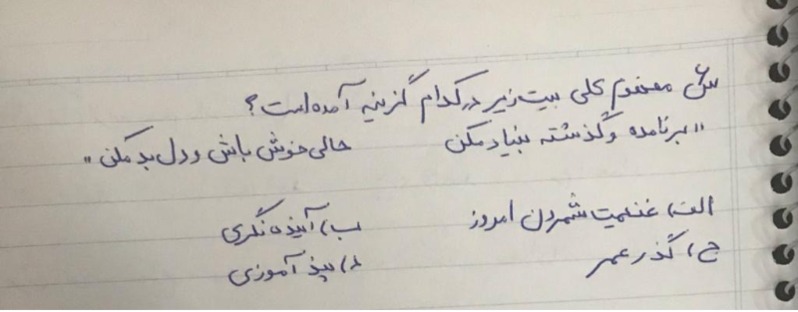 س۶ مفهوم کلی بیت زیر در کدام گزینه آمده است؟
"برنامده و گذشته بنیاد مکن حالی خوش باش و دل بد مکن"
الف) غنیمت شمردن امروز ب) آینده نگری
ج) گذر عمر د) پند آموزی